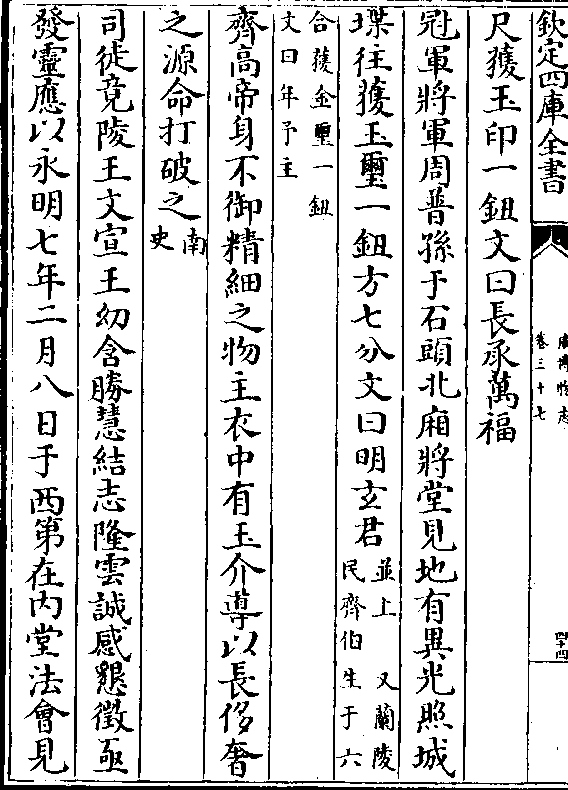 欽定四庫全書
廣博物志
卷三十七
四十四
尺獲玉印一鈕文曰長承萬福
冠軍將軍周普孫于石頭北廂將堂見地有異光照城
堞往獲玉璽一鈕方七分文曰明玄君
並上　又蘭陵
民齊伯生于六
合獲金璽一鈕
文曰年予主
齊高帝身不御精細之物主衣中有玉介導以長侈奢
之源命打破之
南
史
司徒竟陵王文宣王幼含勝慧結志隆雲誠感懇徵亟
發靈應以永明七年二月八日于西第在内堂法會見